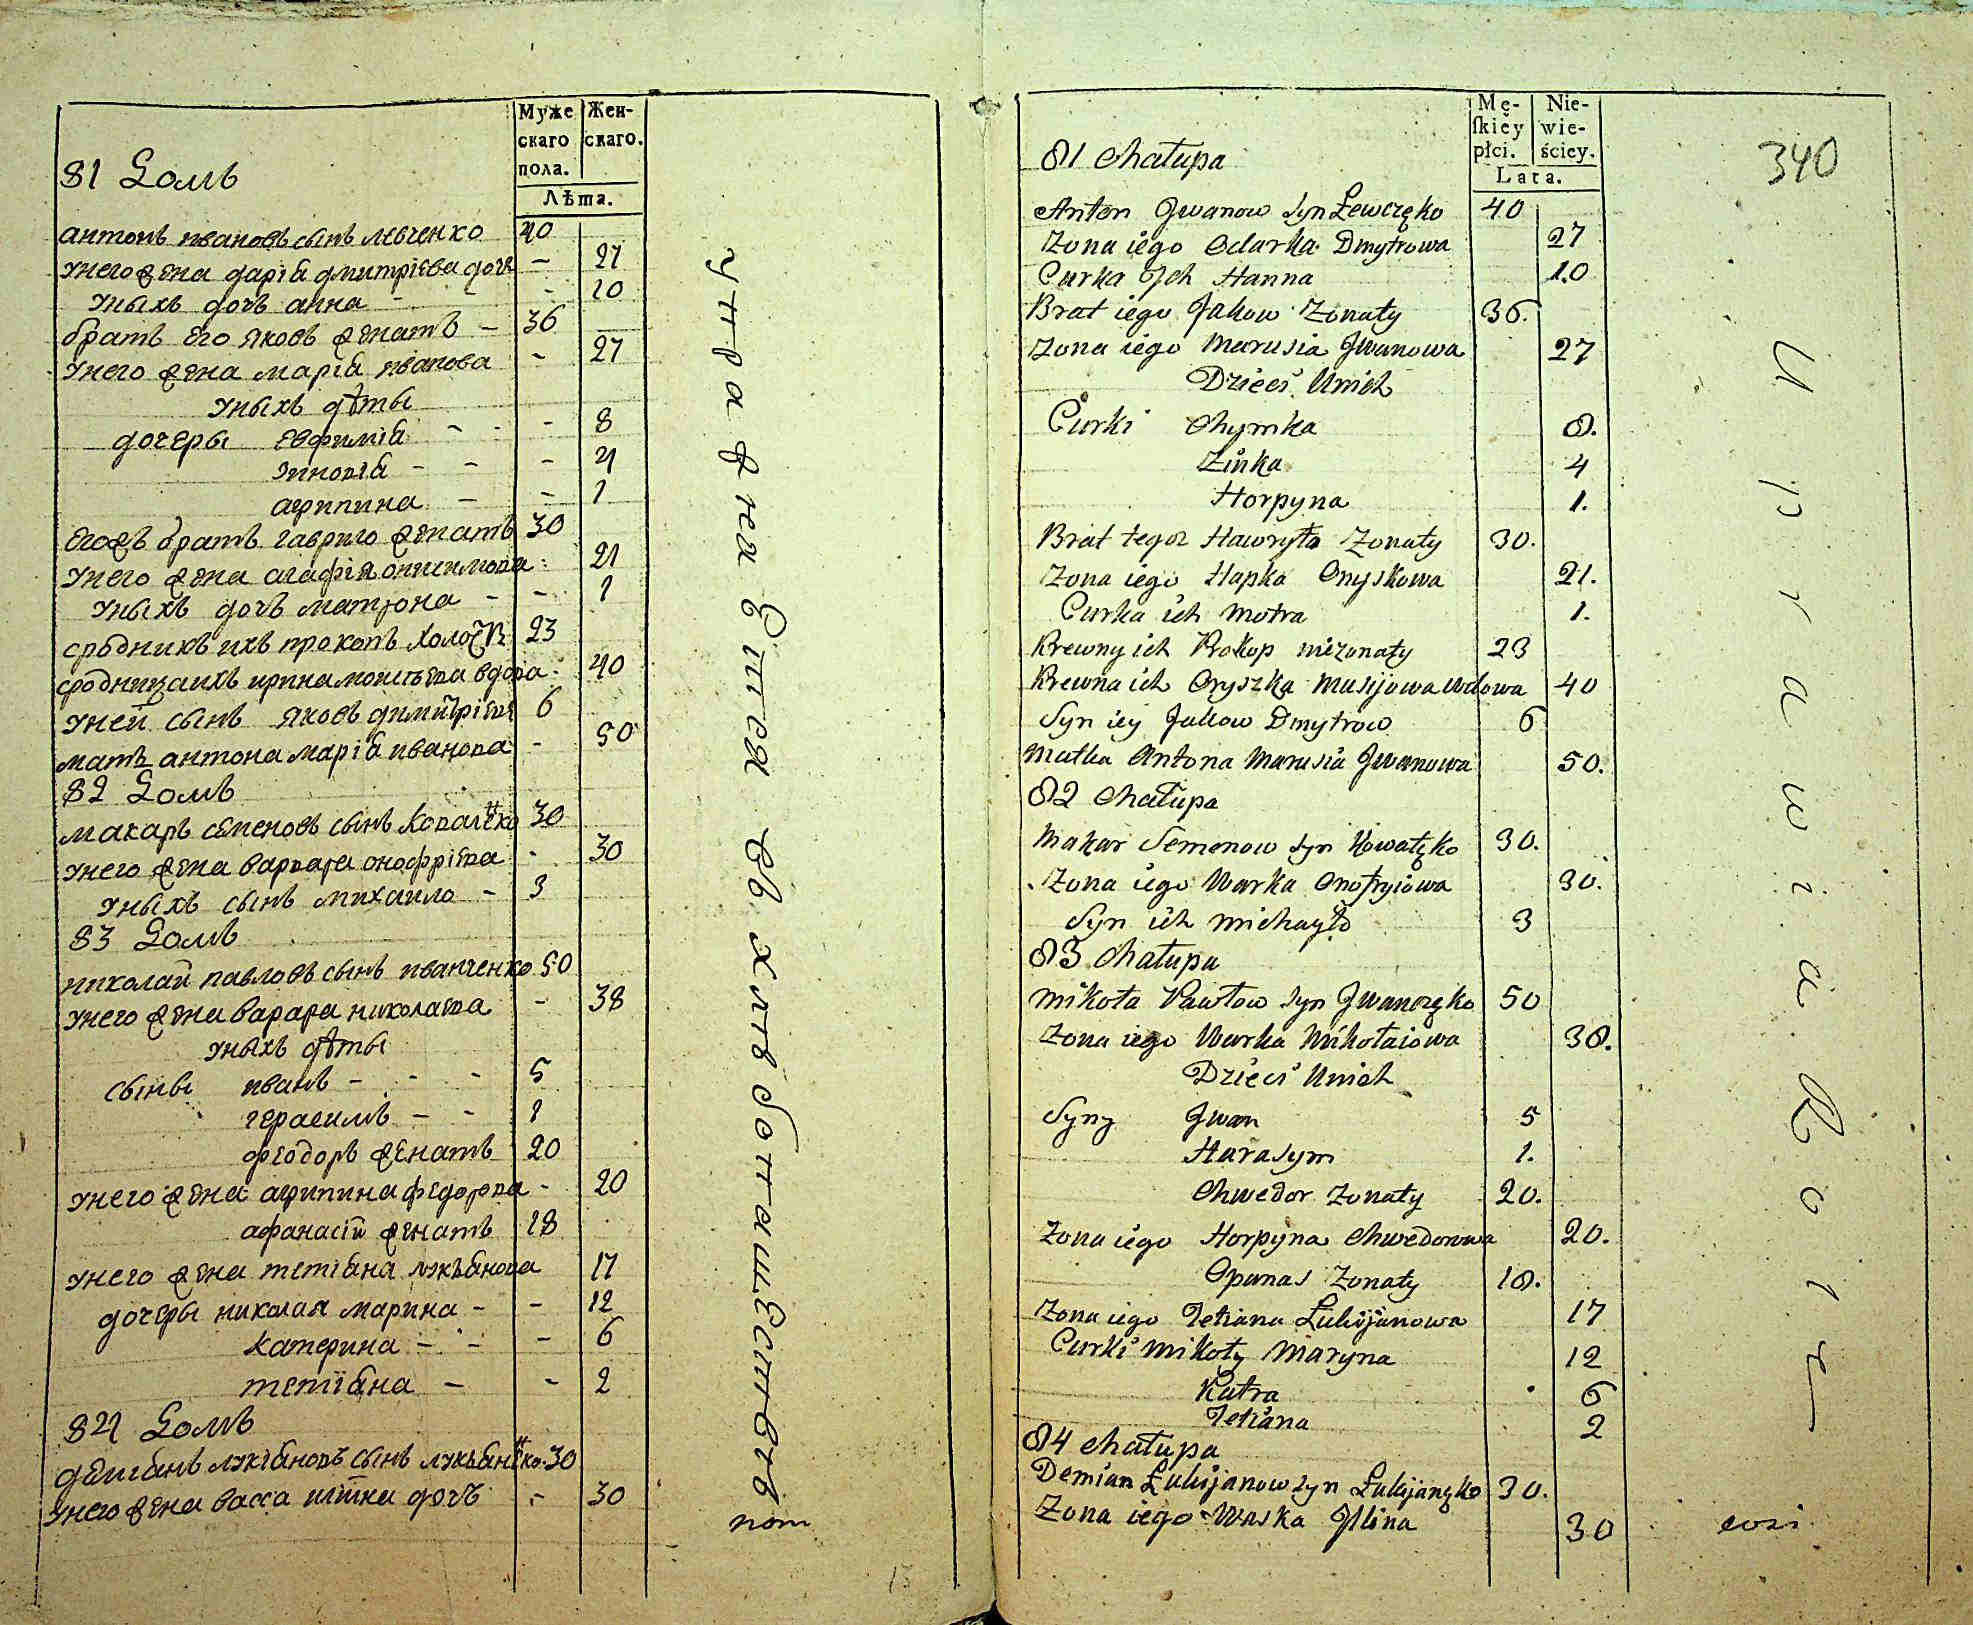 Муже
скаго
пола.
Жен-
скаго.
Лѣта.
81 Домъ
антонъ ивановъ сынъ левченко 40
унего жена дарiа дмитрiева дочь - 27
уныхъ дочъ анна - - 10
братъ его яковъ женатъ - 36
унего жена марiа иванова - 27
уныхъ дѣты
дочеры евфимiа - - - 8
зиновiа - - - 4
агрипина - - 1
егожъ братъ гаврило женатъ 30
унего жена агафiя онисимова 21
уныхъ дочъ матрона - - 1
сродникъ ихъ прокопъ холостъ 23
сродница ихъ ирина моисѣева вдова 40
уней сынъ яковъ димитрiевъ 6
матъ антона марiа иванова - 50
82 Домъ
макаръ семеновъ сынъ коваленко 30
унего жена варвара онофрiева - 30
уныхъ сынъ михаило - 3
83 Домъ
николай павловъ сынъ иванченко 50
унего жена варвара николаева - 38
уныхъ дѣты
сыны иванъ - - - 5
герасимъ - - 1
феодоръ женатъ 20
унего жена агрипина федорова - 20
афанасiй женатъ 18
унего жена тетiана лукъанова 17
дочеры николая марина - - 12
катерина - - - 6
тетiана - - 2
84 Домъ
демiанъ лукiановъ сынъ лукъаненко 30
унего жена васса илiина дочъ - 30
упражняется въ хлѣбопашествѣ
пот
15
Mę-
ſkiéy
płci.
Nie-
wie-
ściey.
Lata.
340
81 Chałupa
Anton Jwanow syn Lewczęko 40
Zona iego Odarka Dmytrowa 27
Curka Jch Hanna 10
Brat iego Jakow Zonaty 36.
Zona iego Marusia Jwanowa 27
Dzieci Unich
Curki Chymka 8.
Zinka 4
Horpyna 1.
Brat tegoz Hawryło Zonaty 30.
Zona iego Hapka Onyskowa 21.
Curka ich Motra 1.
Krewny ich Prokop niezonaty 23
Krewna ich Oryszka Musijowa Wdowa 40
Syn iey Jakow Dmytrow 6
Matka Antona Marusia Jwanowa 50.
82 Chałupa
Makar Semenow syn Kowalęko 30.
Zona iego Warka Onofryiowa 30.
Syn ich Michayło 3
83 Chałupa
Mikoła Pawłow syn Jwanczęko 50
Zona iego Warka Mikołaiowa 38.
Dzieci Unich
Syny Jwan 5
Harasym 1.
Chwedor Zonaty 20.
Zona iego Horpyna Chwedorowa 20.
Opanas Zonaty 18.
Zona iego Tetiana Łukijanowa 17
Curki Mikoły Maryna 12
Katra 6
Tetiana 2
84 Chałupa
Demian Łukijanow syn Łukijanęko 30.
Zona iego Waska Jllina 30
Uprawia Rolę